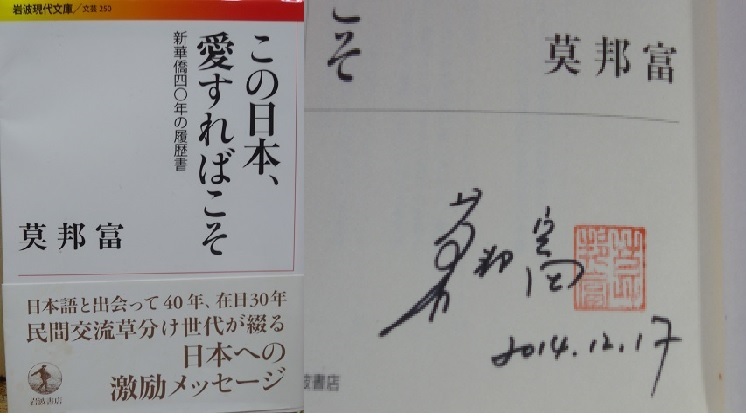 岩波現代文庫/文芸 250
この日本、
愛すればこそ
新華僑四〇年の履歴書
莫邦富
日本語と出会って40年、在日30年
民間交流草分け世代が綴る
日本への
激励メッセージ
岩波書店
こそ
莫邦富
莫邦富
2014.12.17
波書店